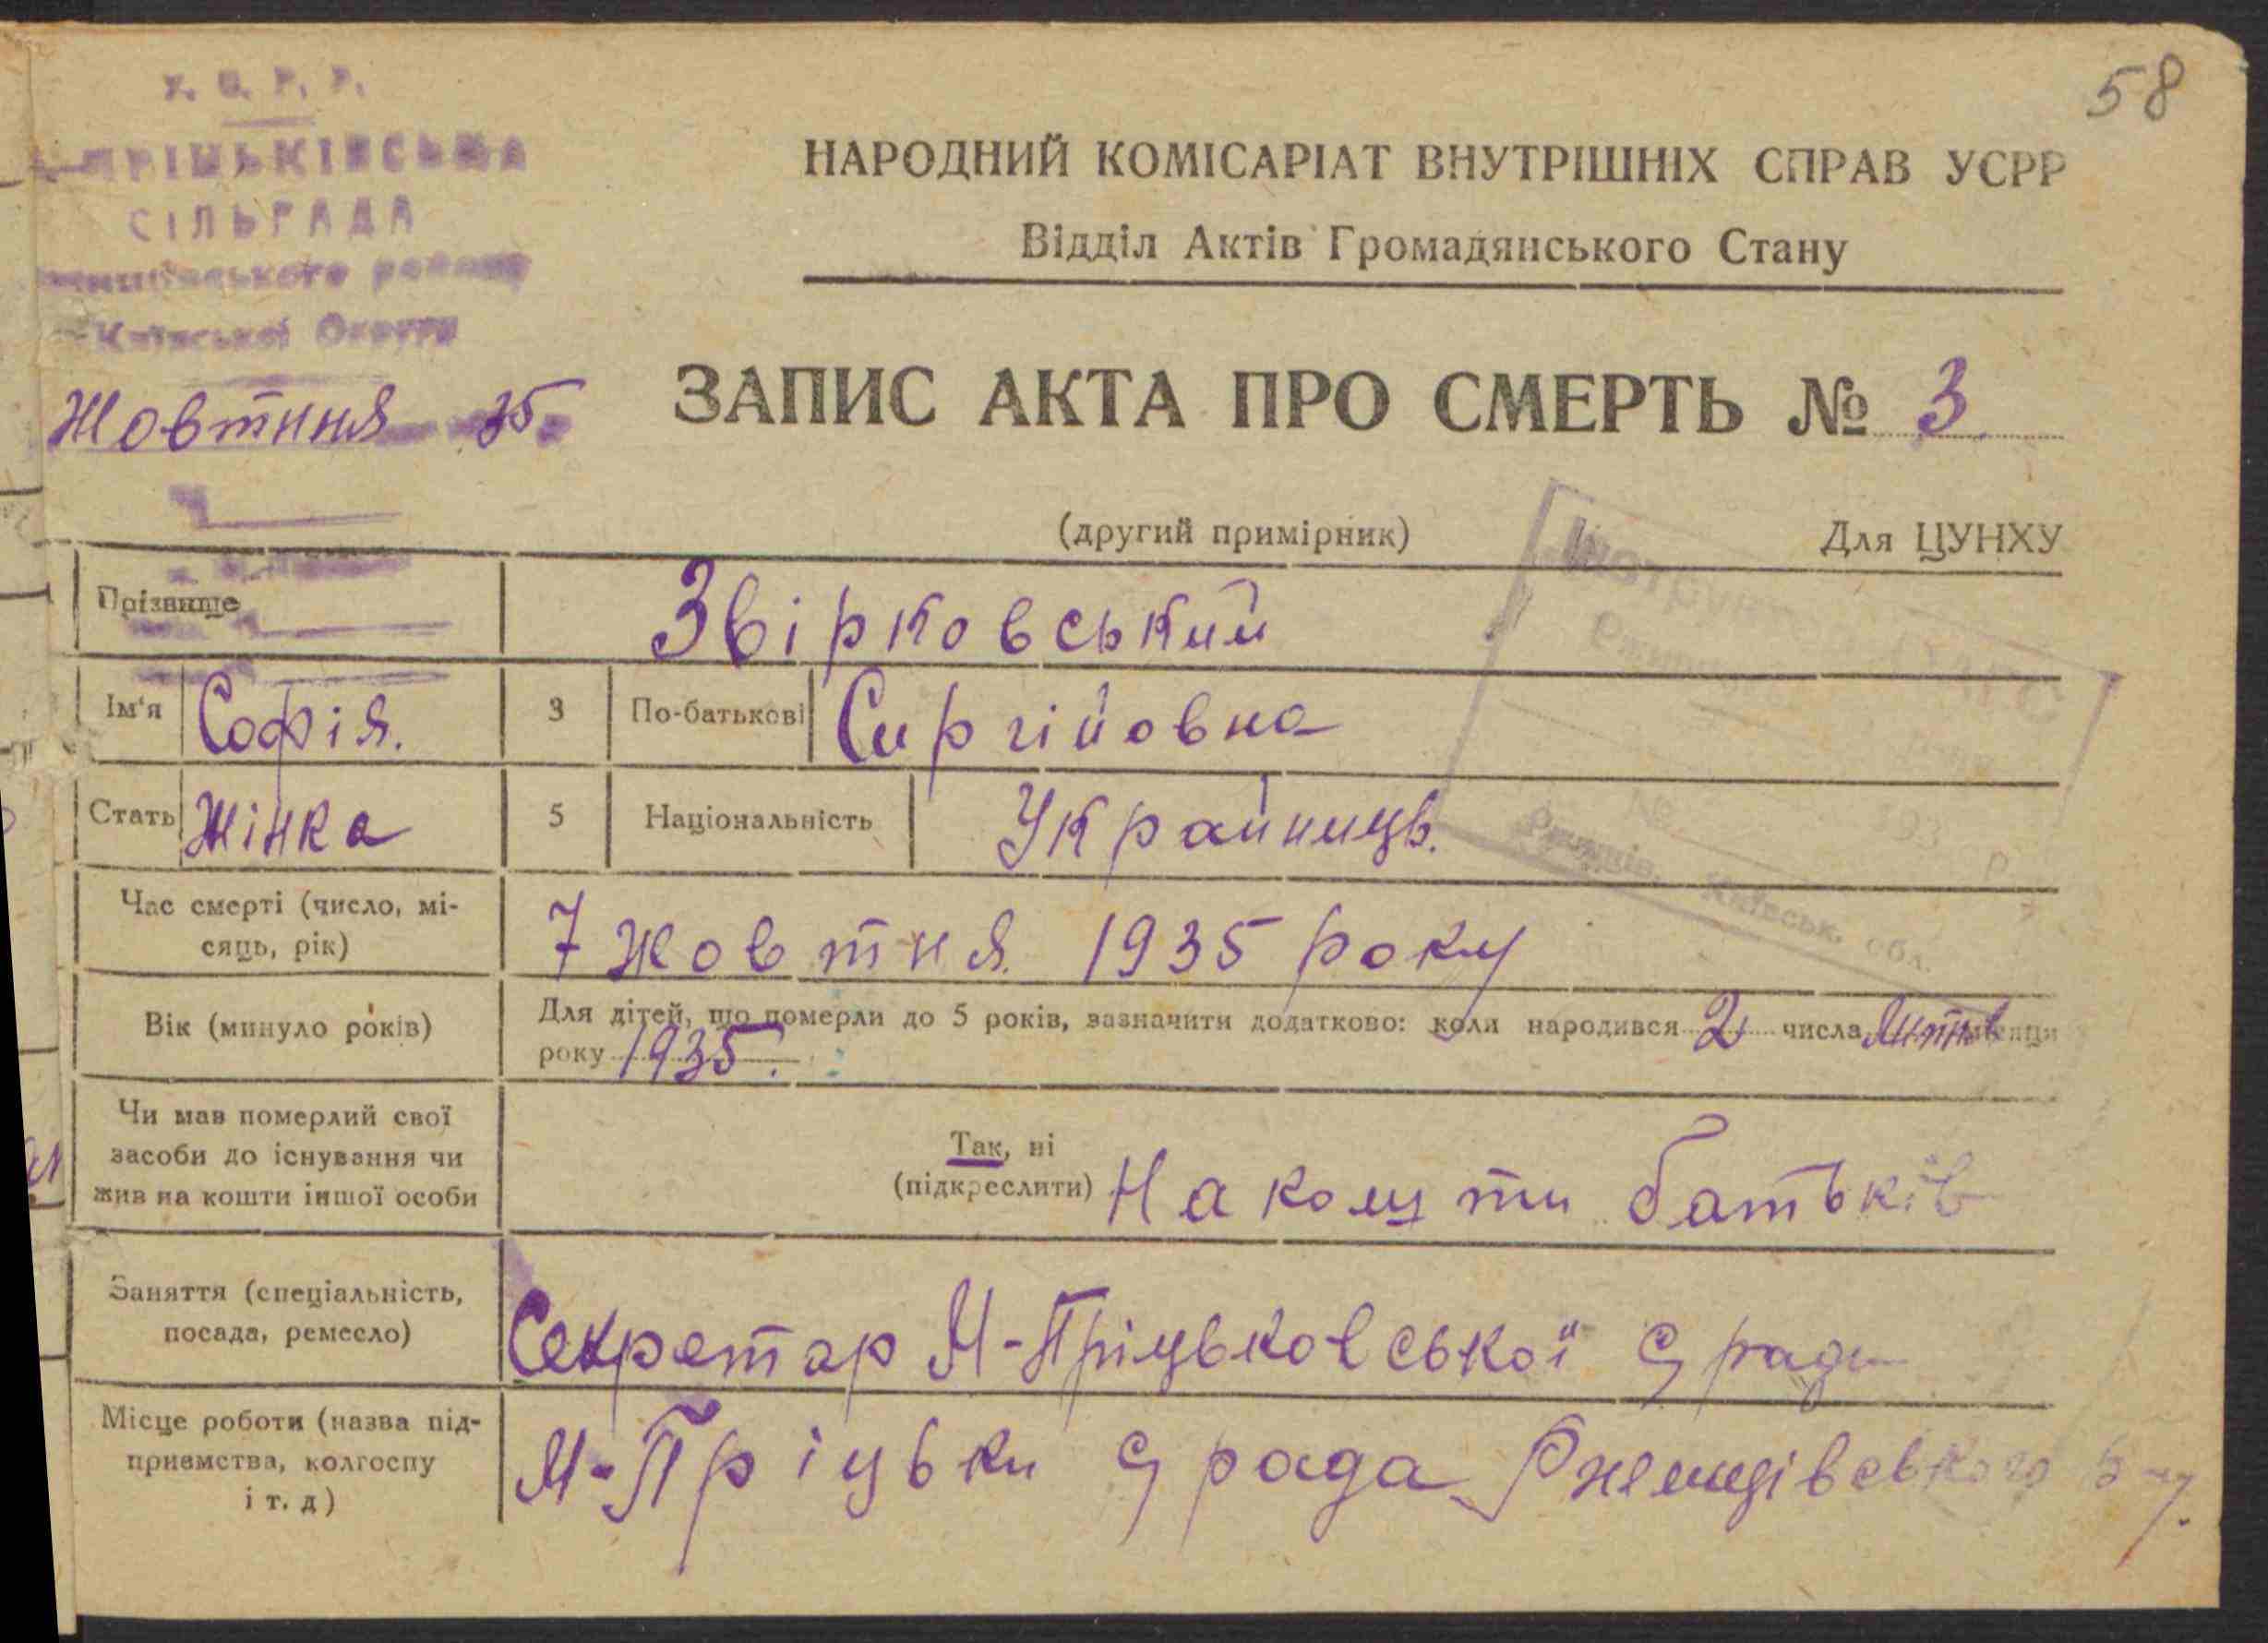 58
У. С. Р. Р.
СІЛЬРАДА
Київської Округи
Жовтння 35
НАРОДНИЙ КОМІСАРІАТ ВНУТРІШНІХ СПРАВ УСРР
Відділ Актів Громадянського Стану
ЗАПИС АКТА ПРО СМЕРТЬ № 3
(другий примірник) Для ЦУНХУ
Прізвище Звірковський
Ім'я Софія. 3 По-батькові Сиргійовна
Стать Жінка 5 Національність Украйниць.
№ 193 р.
Ржищів, Київськ. обл.
Час смерті (число, мі-
сяць, рік) 7 жовтня 1935 року
Вік (минуло років) Для дітей, що померли до 5 років, зазначити додатково: коли народився 2 числа місяця
року 1935.
Чи мав померлий свої
засоби до існування чи
жив на кошти іншої особи
Так, ні
(підкреслити) На кошти батьків
Заняття (спеціальність,
посада, ремесло) Секретар М-Пріцьковської С ради
Місце роботи (назва під-
приємства, колгоспу
і т. д) М-Пріцьки С рада Ржещівського